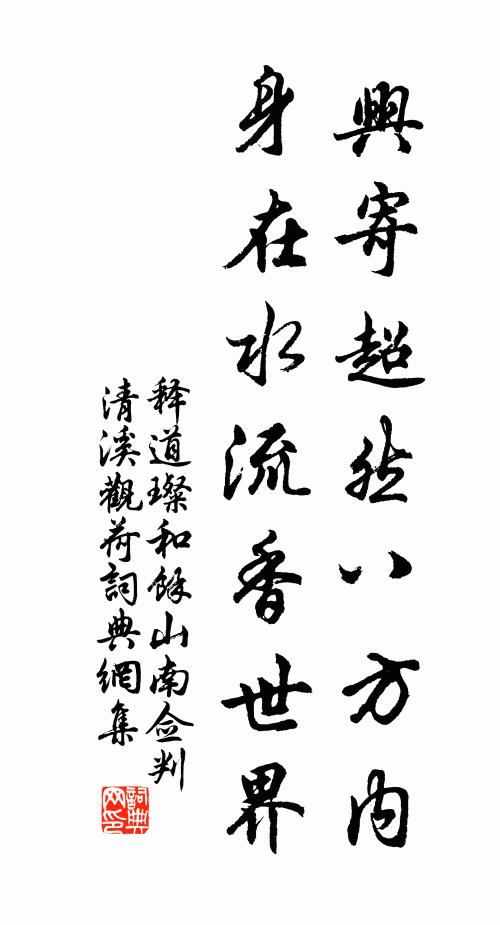 興寄超然八方內
身在水流香世界
释道璨和餘山南僉判
清溪觀荷詞典網集
詞典網印